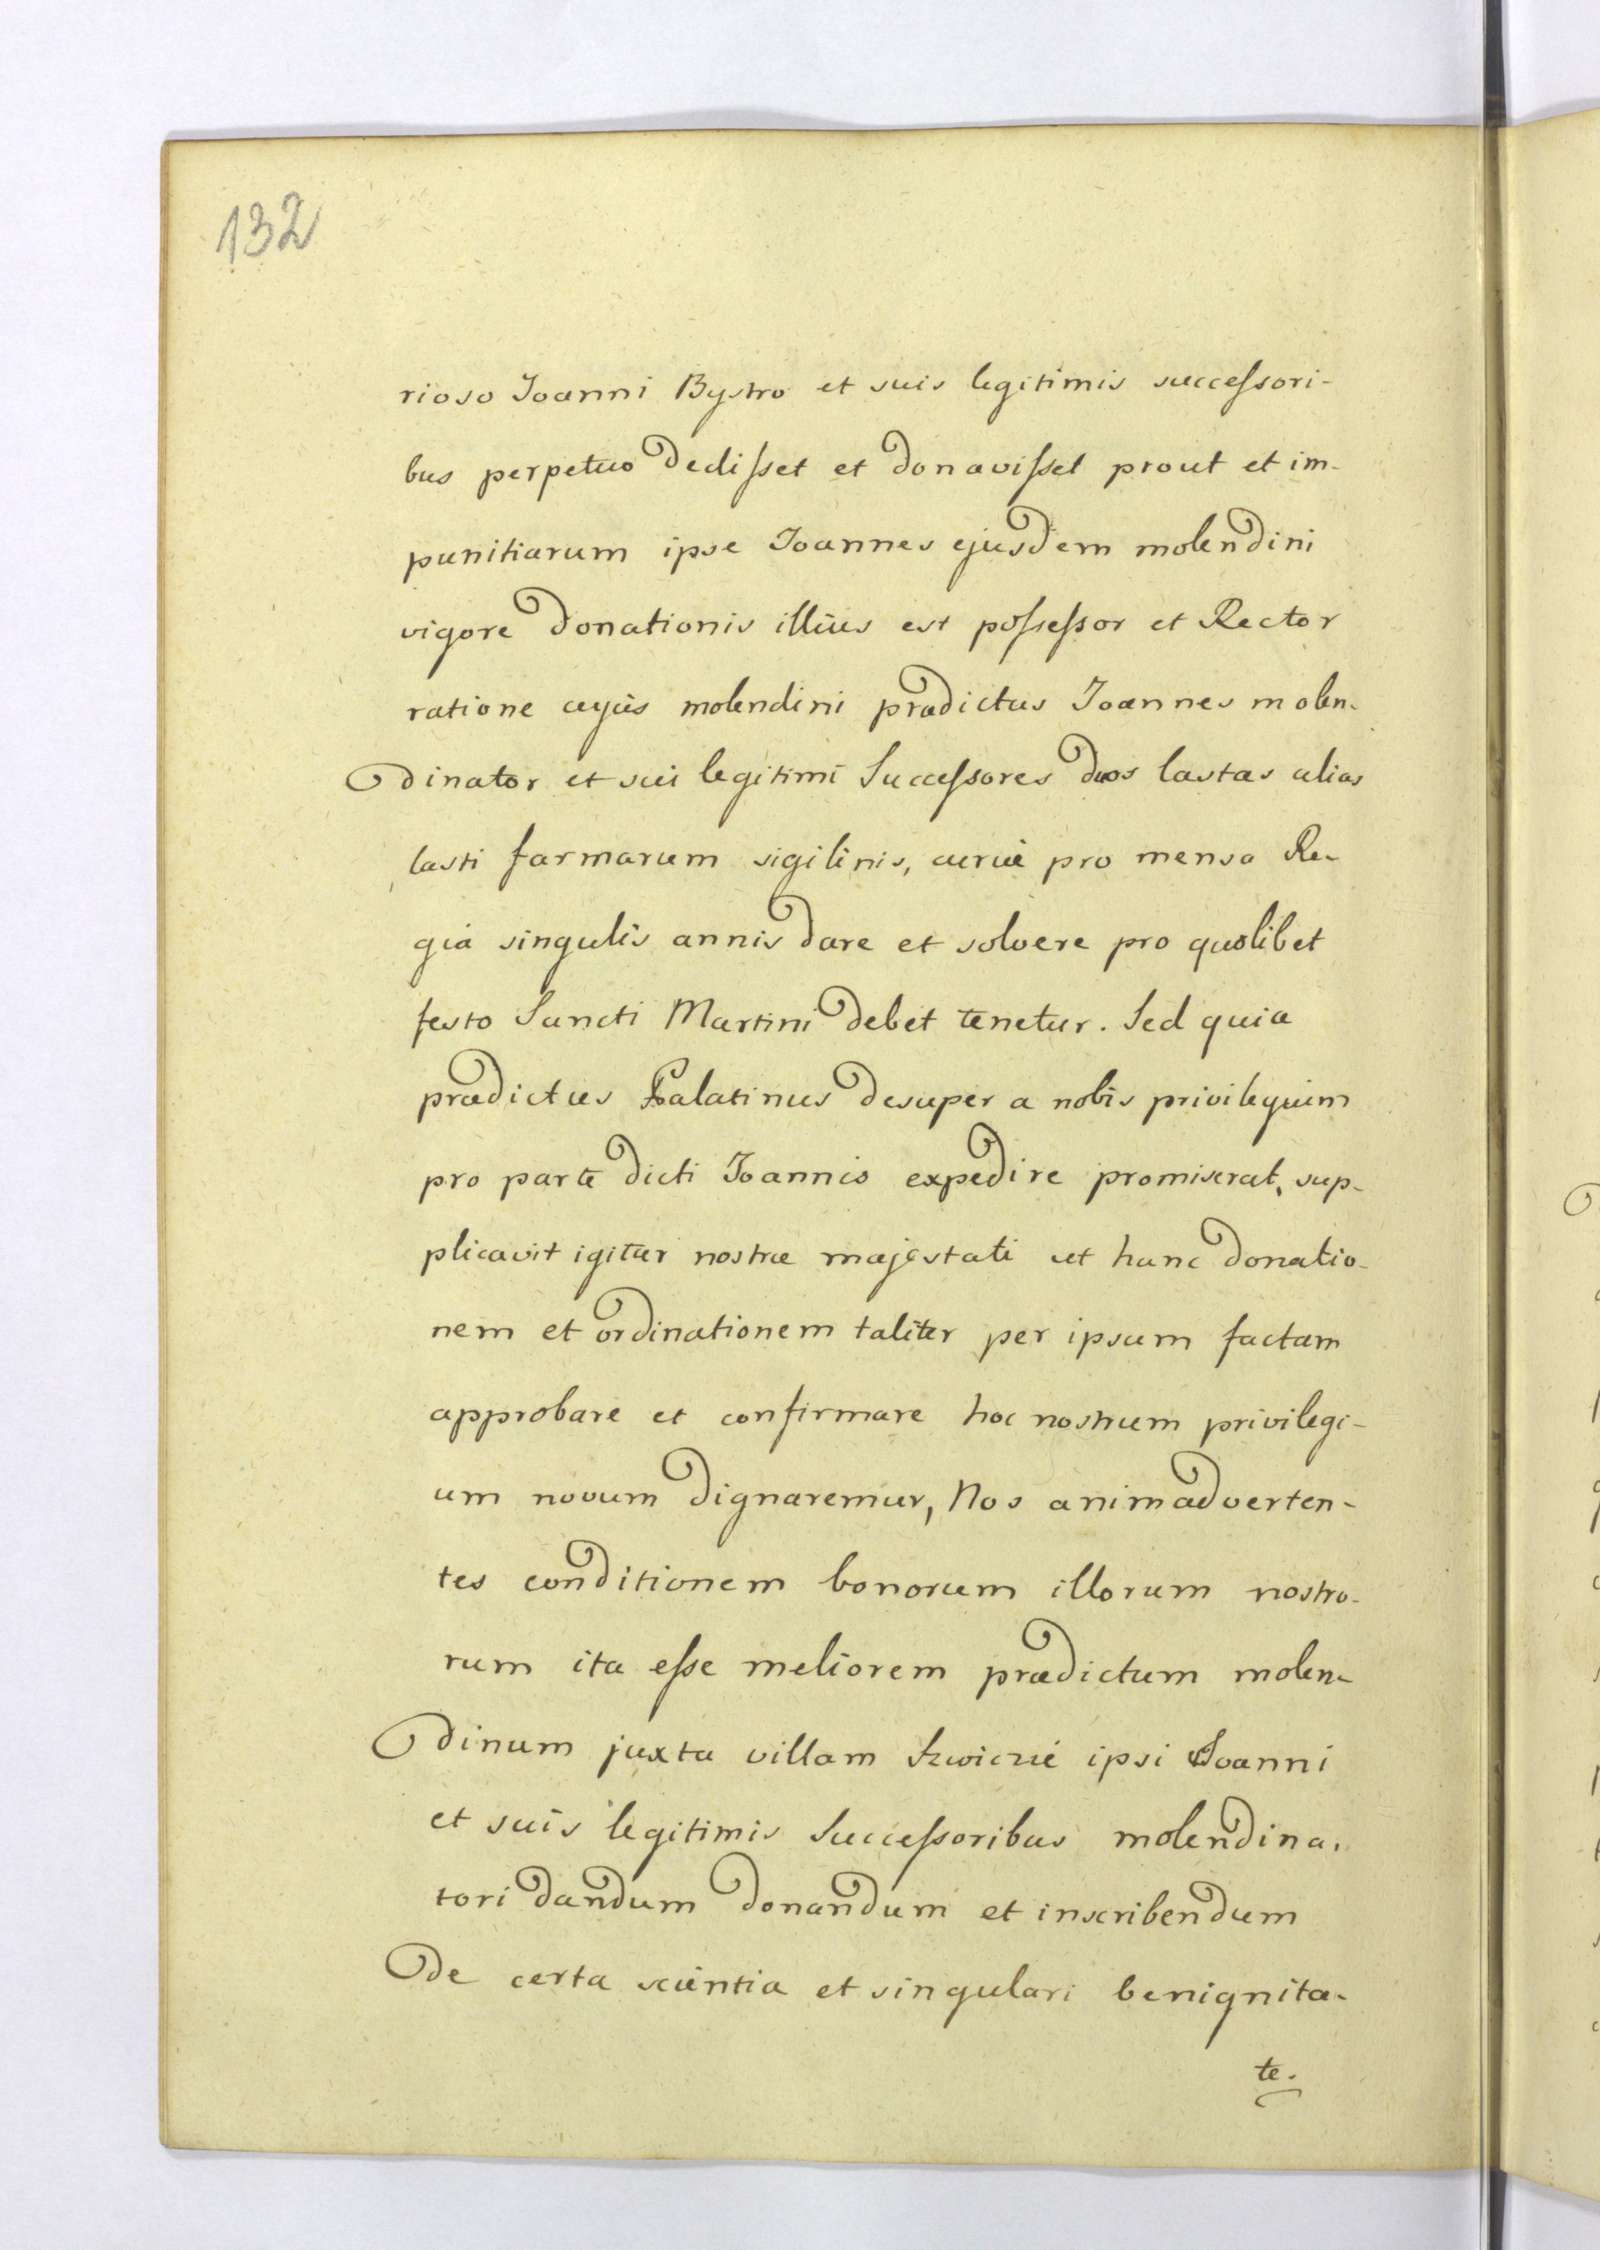 132
rioso Joanni Bystro et suis legitimis successori-
bus perpetuo dedisset et donavisset prout et im-
punitiarum ipse Joannes ejusdem molendini
vigore donationis illius est possessor et Rector
ratione cujus molendini prædictus Joannes molen-
dinator et sui legitimi Successores duos lastas alias
lasti farmarum sigilinis, pro mensa Re-
gia singulis annis dare et solvere pro quolibet
festo Sancti Martini debet tenetur. Sed quia
prædictus Palatinus desuper a nobis privilegium
pro parte dicti Joannis expedire promiserat, sup-
plicavit igitur nostræ majestati ut hanc donatio-
nem et ordinationem taliter per ipsum factam
approbare et confirmare hoc nostrum privilegi-
um novum dignaremur, Nos animadverten-
tes conditionem bonorum illorum nostro-
rum ita esse meliorem prædictum molen-
dinum juxta villam Szwiczie ipsi Joanni
et suis legitimis Successoribus molendina-
tori dandum donandum et inscribendum
de certa scientia et singulari benignita-
te.